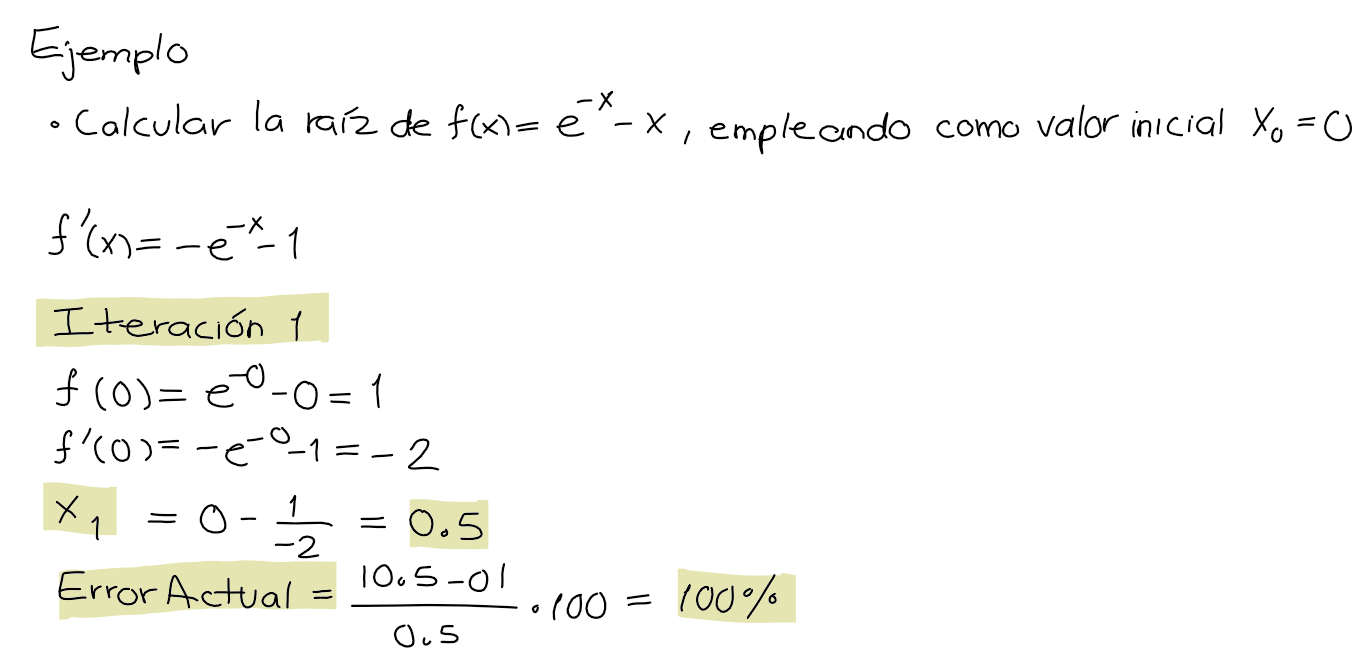 Ejemplo
• Calcular la raíz de f(x) = e^{-x} - x, empleando como valor inicial X₀ = 0
f'(x) = -e^{-x} - 1
Iteración 1
f(0) = e^{-0} - 0 = 1
f'(0) = -e^{-0} - 1 = -2
x₁ = 0 - \frac{1}{-2} = 0.5
Error Actual = \frac{|0.5 - 0|}{0.5} • 100 = 100%